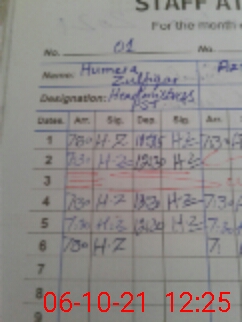 STAFF AT
For the month
No. 01 No.
Name: Humera
Zulfiqar
Designation: Headmistress
PST
Dates. Arr. Sig. Dep. Sig. Arr.
1 7:30 H.Z H.Z 7:30
2 7:30 H.Z 12:30 H.Z
3
4 7:30 H.Z 12:30 H.Z 7:30
5 7:30 H.Z 12:30 H.Z 7:30
6 7:30 H.Z 7:
7
8
9
06-10-21 12:25